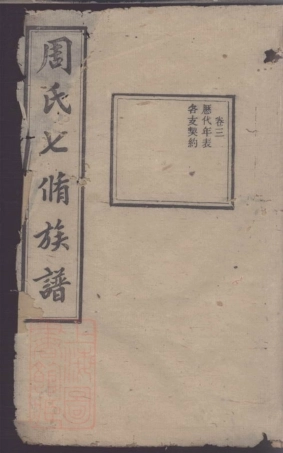 周氏七脩族譜
卷三
歷代年表
各支契約